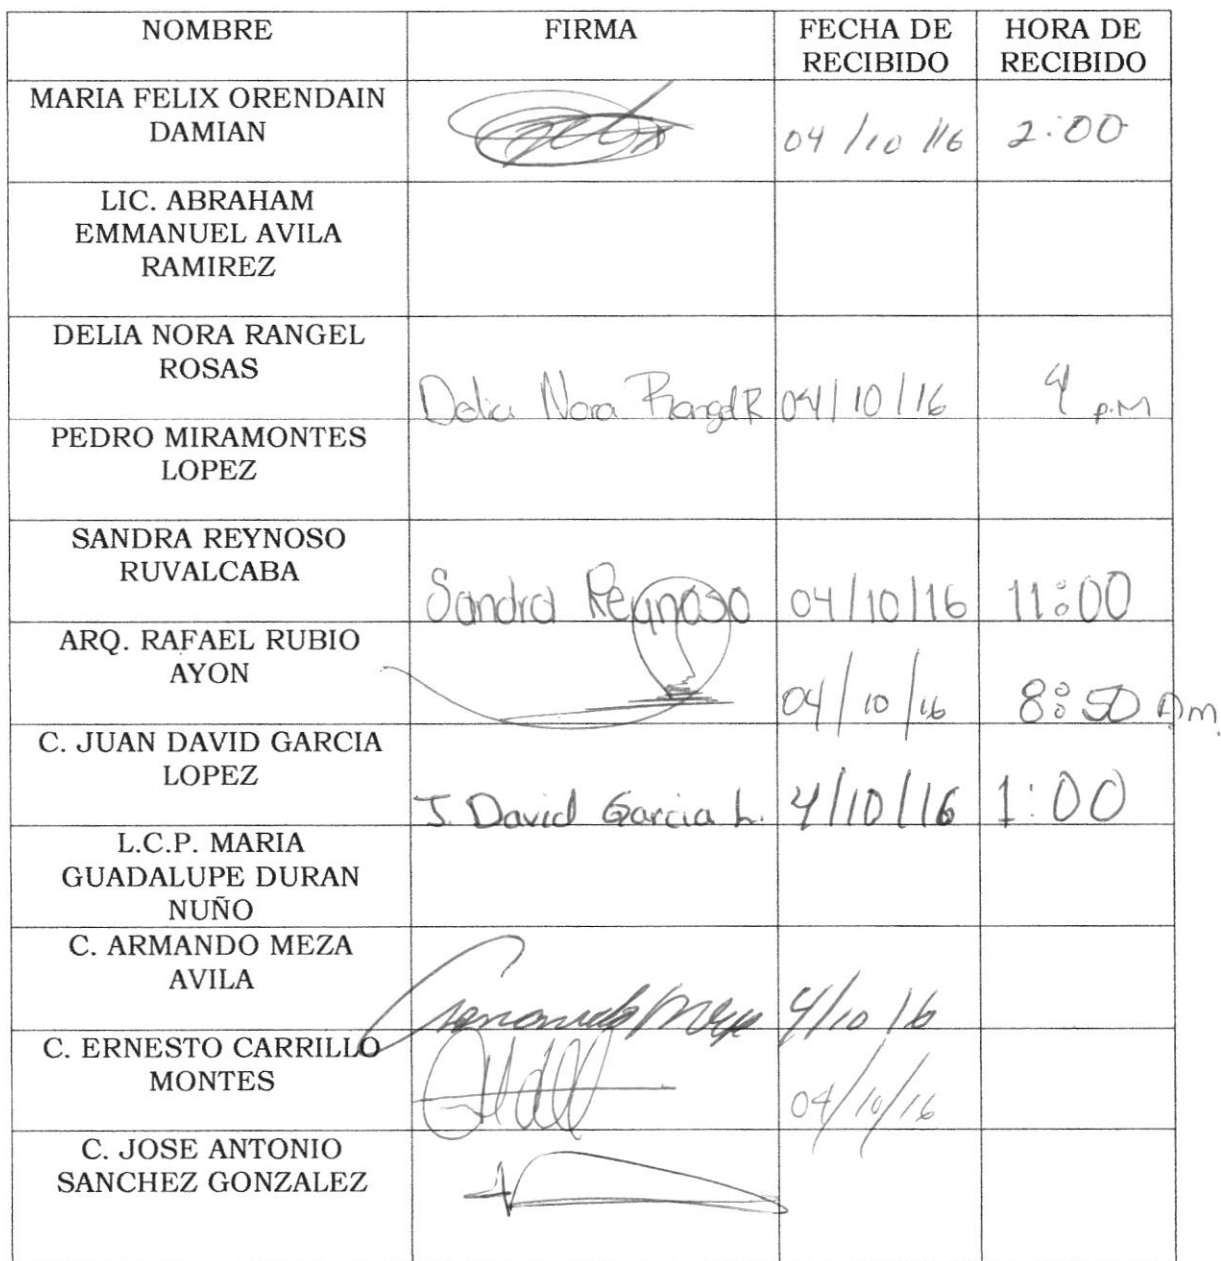 NOMBRE FIRMA FECHA DE HORA DE
RECIBIDO RECIBIDO
MARIA FELIX ORENDAIN
DAMIAN 04/10/16 2:00
LIC. ABRAHAM
EMMANUEL AVILA
RAMIREZ
DELIA NORA RANGEL
ROSAS
Delia Nora Rangel R 04/10/16 4 p.m
PEDRO MIRAMONTES
LOPEZ
SANDRA REYNOSO
RUVALCABA
Sandra Reynoso 04/10/16 11:00
ARQ. RAFAEL RUBIO
AYON
04/10/16 8:50 Am.
C. JUAN DAVID GARCIA
LOPEZ
J. David Garcia L. 4/10/16 1:00
L.C.P. MARIA
GUADALUPE DURAN
NUÑO
C. ARMANDO MEZA
AVILA
Armando Meza 4/10/16
C. ERNESTO CARRILLO
MONTES
04/10/16
C. JOSE ANTONIO
SANCHEZ GONZALEZ